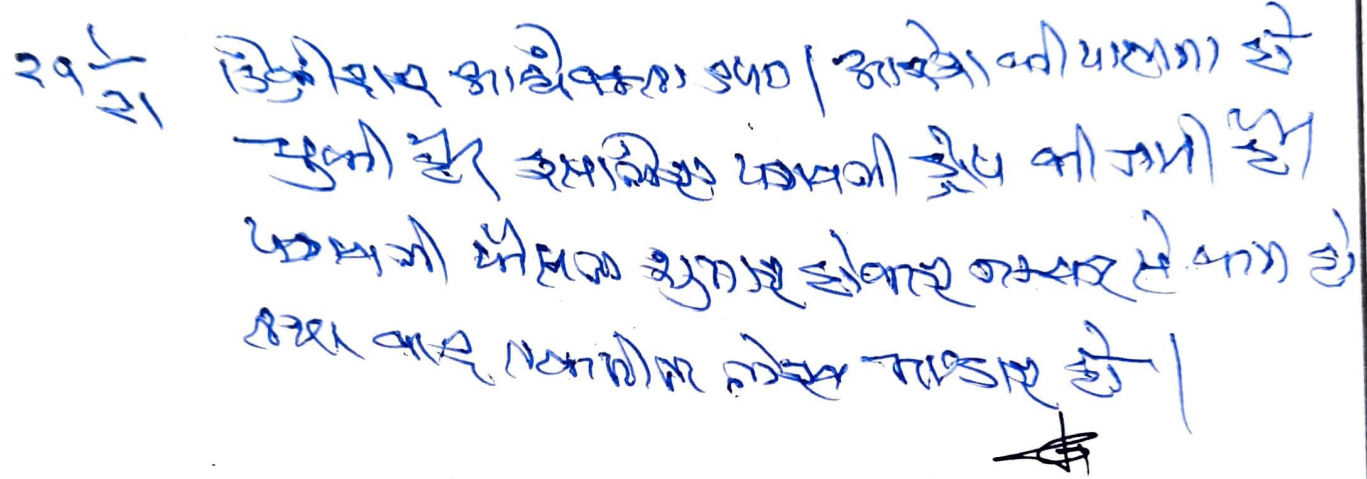 २१/१/२१ डिक्रीदार अधिवक्ता उप0। आदेश की पालना हो
चुकी है। इसलिए पत्रावली ड्रोप की जाती है।
पत्रावली फैसल शुमार होकर नम्बर से कम हो
तथा बाद तकमील लेख भण्डार हो।